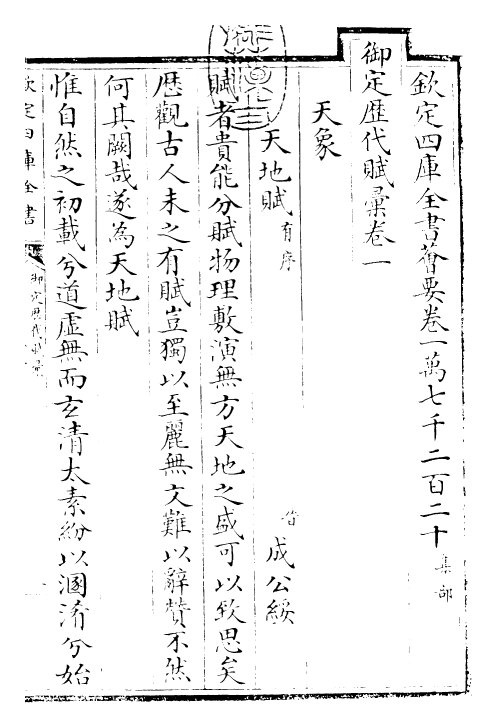 欽定四庫全書薈要卷一萬七千二百二十集部
御定歷代賦彙卷一
天象
天地賦有序 晉 成公綏
賦者貴能分賦物理敷演無方天地之盛可以致思矣
歷觀古人未之有賦豈獨以至麗無文難以辭贊不然
何其闕哉遂為天地賦
惟自然之初載兮道虛無而玄清太素紛以溷淆兮始
欽定四庫全書
御定歷代賦彙